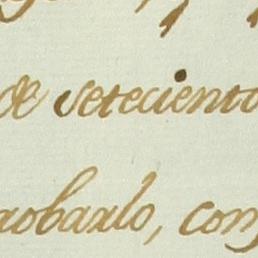 de setecento
robarlo, con